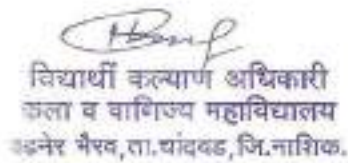 विद्यार्थी कल्याण अधिकारी
कला व वाणिज्य महाविद्यालय
वडनेर भैरव,ता.चांदवड,जि.नाशिक.